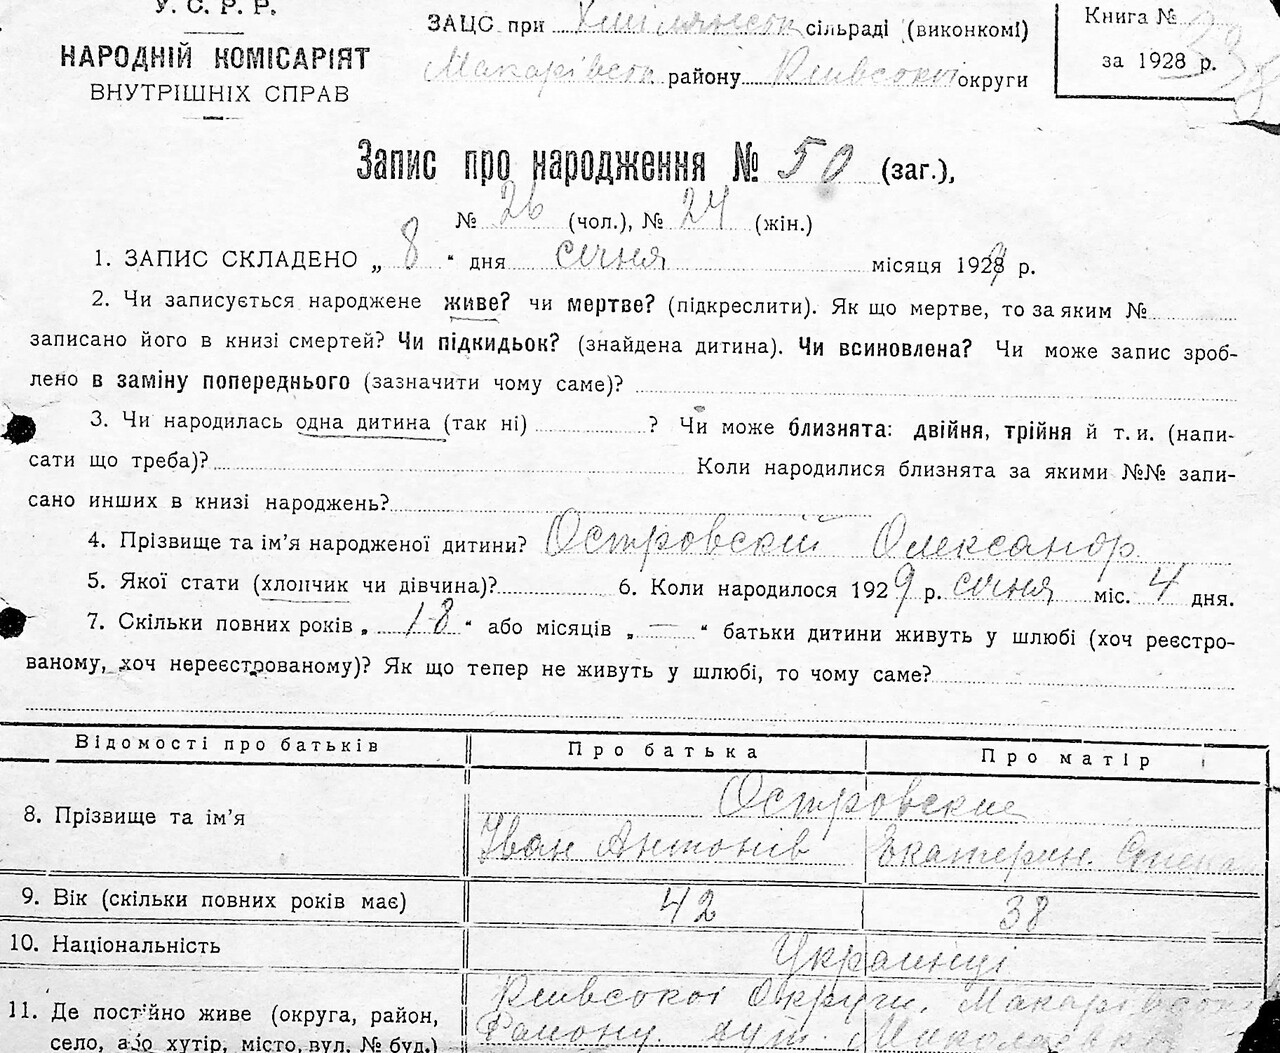 У. С. Р. Р.
НАРОДНІЙ КОМІСАРІЯТ
ВНУТРІШНІХ СПРАВ
ЗАЦС при сільраді (виконкомі)
Макарівськ району Київської округи
Книга №
за 1928 р.
Запис про народження № 50 (заг.),
№ 26 (чол.), № 24 (жін.)
1. ЗАПИС СКЛАДЕНО „ 8 “ дня січня місяця 1929 р.
2. Чи записується народжене живе? чи мертве? (підкреслити). Як що мертве, то за яким №
записано його в книзі смертей? Чи підкидьок? (знайдена дитина). Чи всиновлена? Чи може запис зроб-
лено в заміну попереднього (зазначити чому саме)?
3. Чи народилась одна дитина (так ні) ? Чи може близнята: двійня, трійня й т. и. (напи-
сати що треба)? Коли народилися близнята за якими №№ запи-
сано инших в книзі народжень?
4. Прізвище та ім’я народженої дитини? Островскій Олександр
5. Якої стати (хлопчик чи дівчина)? 6. Коли народилося 1929 р. січня міс. 4 дня.
7. Скільки повних років „ 18 “ або місяців „ — “ батьки дитини живуть у шлюбі (хоч реєстро-
ваному, хоч нереєстрованому)? Як що тепер не живуть у шлюбі, то чому саме?
Відомості про батьків Про батька Про матір
8. Прізвище та ім’я Островские
Іван Антонів Екатерин.
9. Вік (скільки повних років має) 42 38
10. Національність Украинці
11. Де постійно живе (округа, район,
село, або хутір, місто, вул. № буд.)
Київської Округи, Макарівськ
Району. хут. Миколаевка